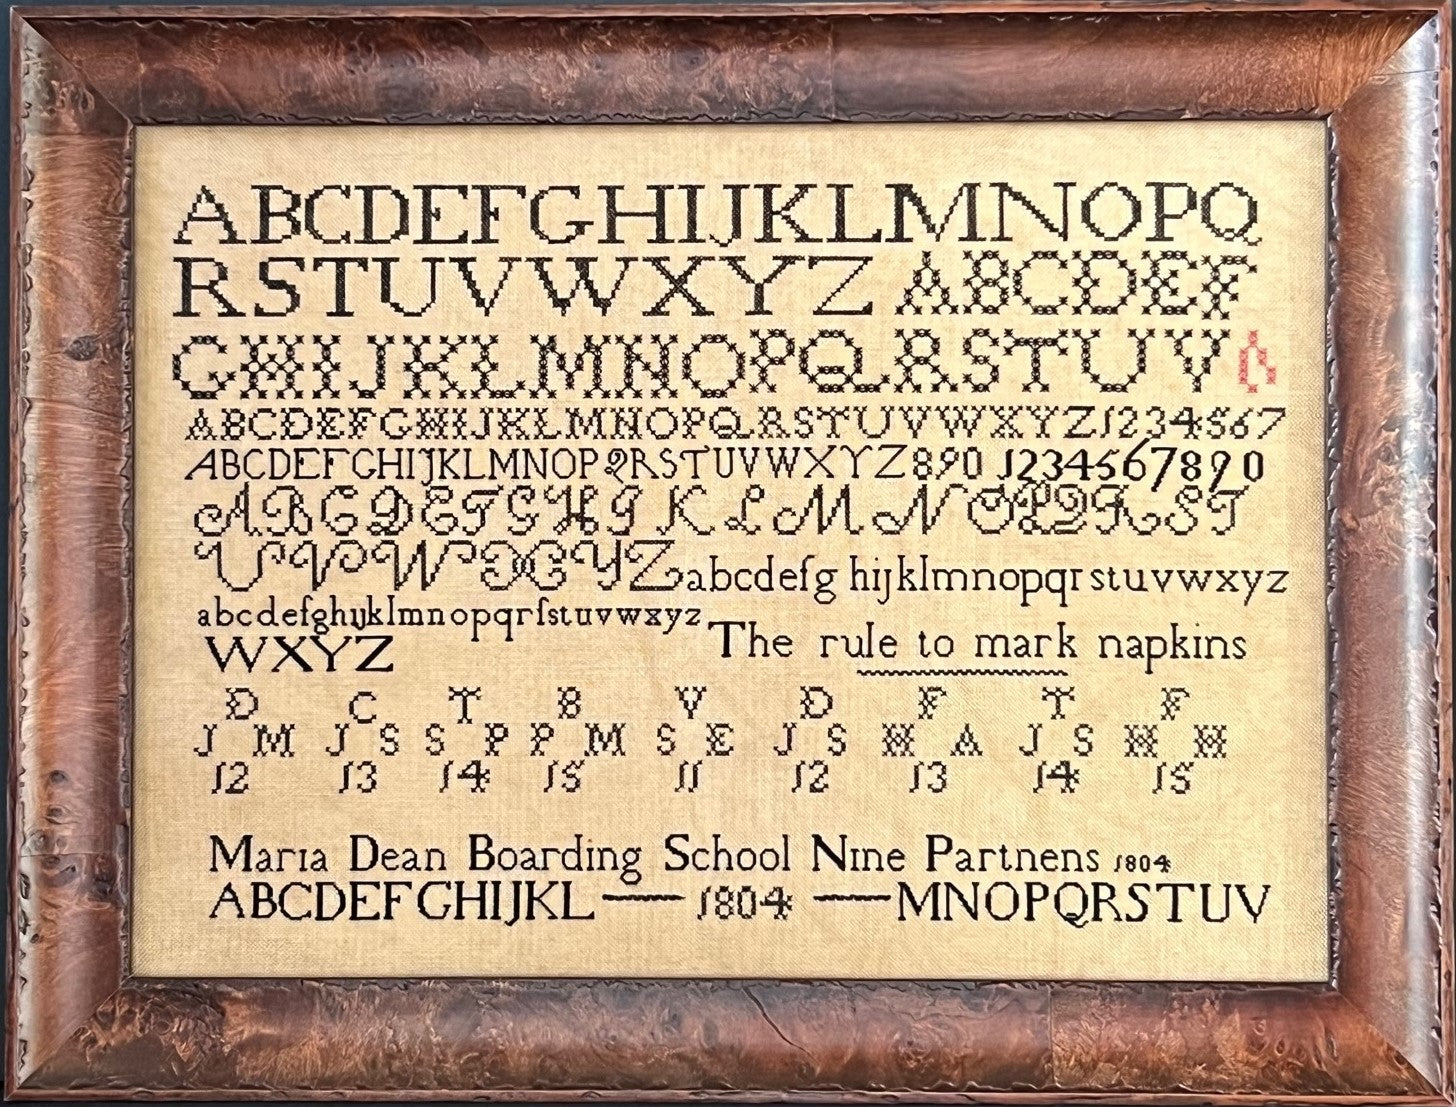 ABCDEFGHIJKLMNOPQ
RSTUVWXYZ ABCDEF
GHIJKLMNOPQRSTUV A
ABCDEFGHIJKLMNOPQRSTUVWXYZ1234567
ABCDEFGHIJKLMNOPQRSTUVWXYZ890 1234567890
ABCDEFGHI KLMNOPQRST
UVWXYZabcdefg hijklmnopqrstuvwxyz
abcdefghijklmnopqrſstuvwxyz
WXYZ The rule to mark napkins
D C T B V D F T F
J M J S S P P M S E J S H A J S H H
12 13 14 15 11 12 13 14 15
Maria Dean Boarding School Nine Partnens 1804
ABCDEFGHIJKL 1804 MNOPQRSTUV